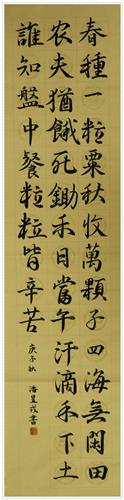 春種一粒粟秋收萬顆子四海無閑田
农夫猶餓死鋤禾日當午汗滴禾下土
誰知盤中餐粒粒皆辛苦
庚子秋